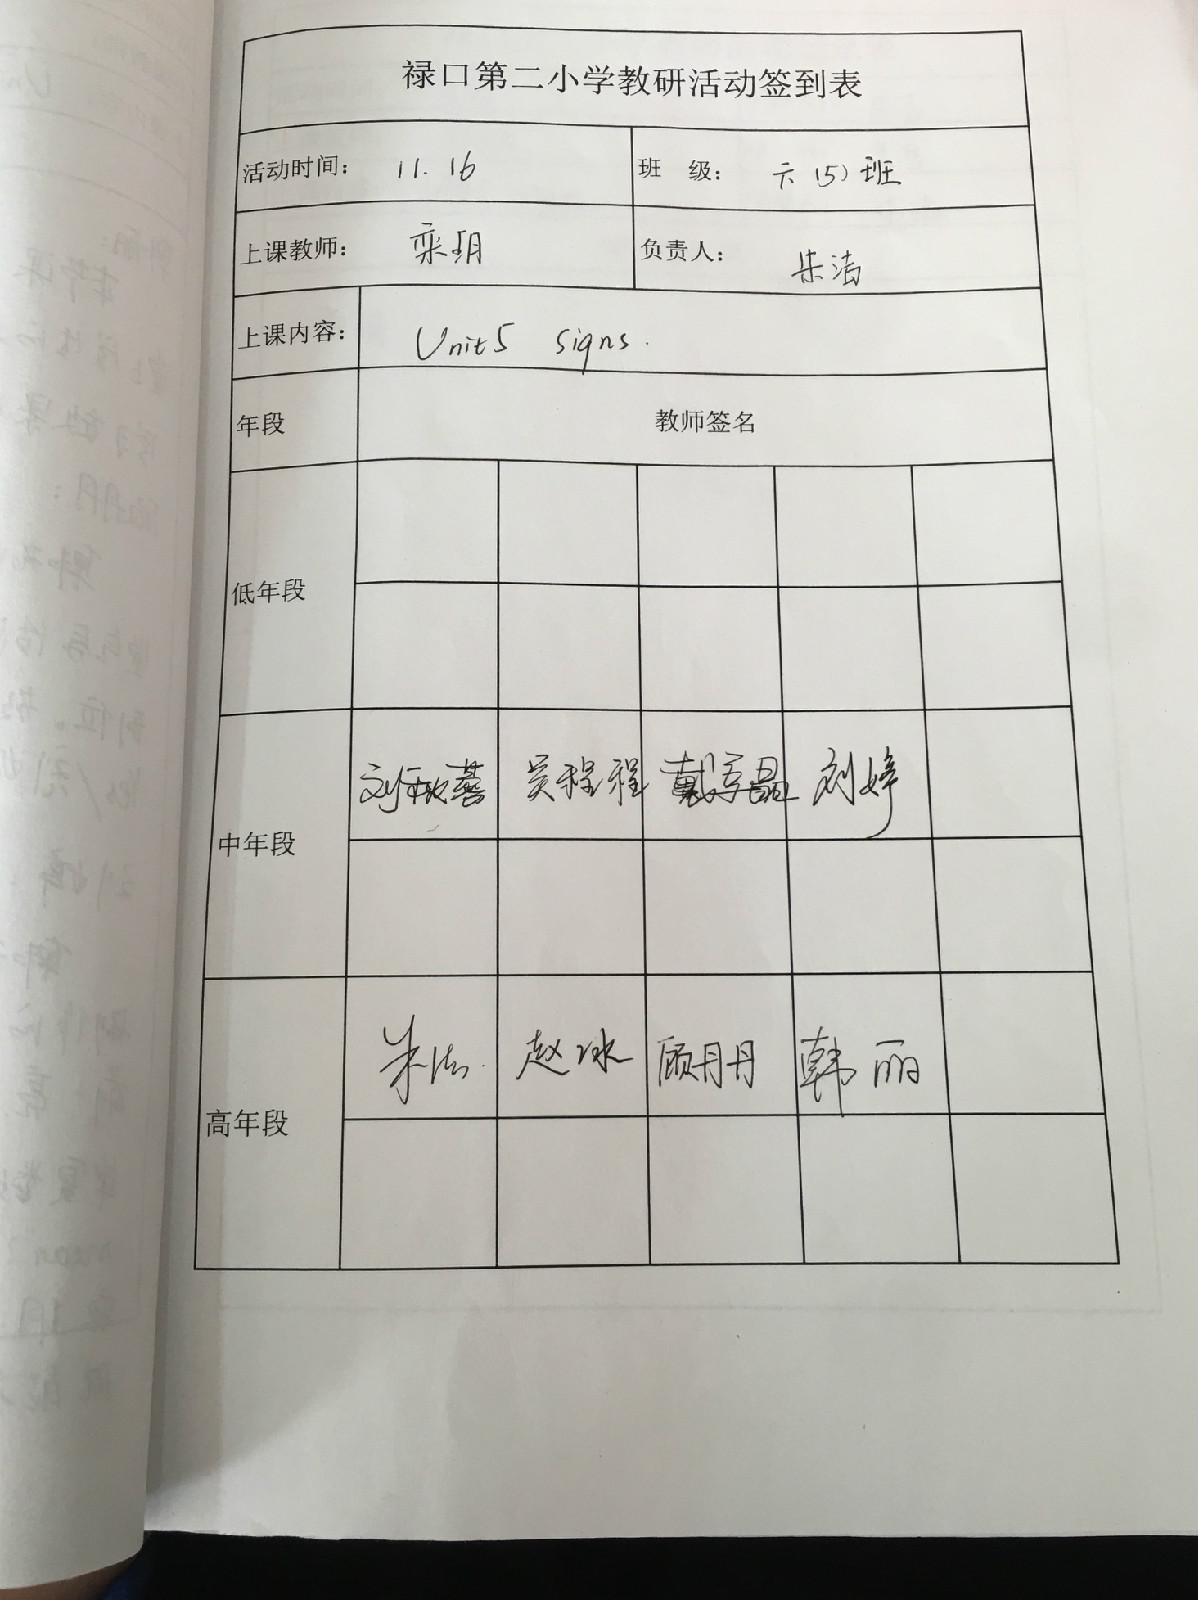 禄口第二小学教研活动签到表
活动时间： 11.16 班 级： 六(5)班
上课教师： 栾玥 负责人： 朱洁
上课内容： Unit5 signs.
年段 教师签名
低年段
刘 吴程程 戴 刘婷
中年段
朱洁 赵冰 顾丹丹 韩丽
高年段